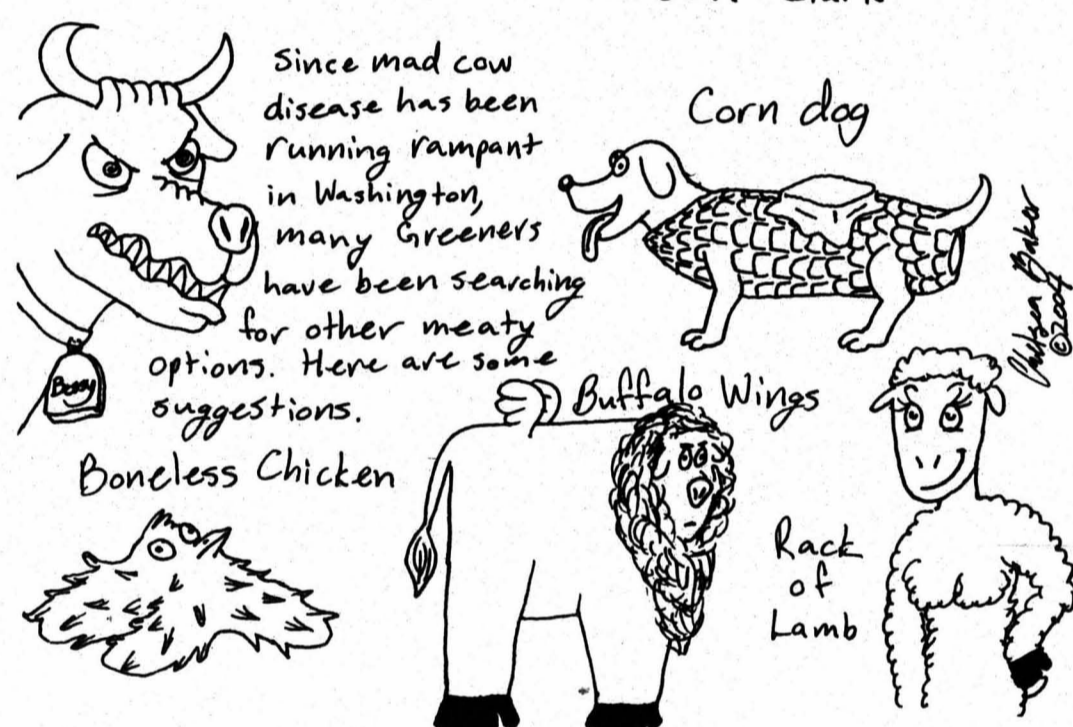 Since mad cow
disease has been
running rampant
in Washington,
many Greeners
have been searching
for other meaty
options. Here are some
suggestions.
Bessy
Corn dog
Boneless Chicken
Buffalo Wings
Rack
of
Lamb
Baker
©2004